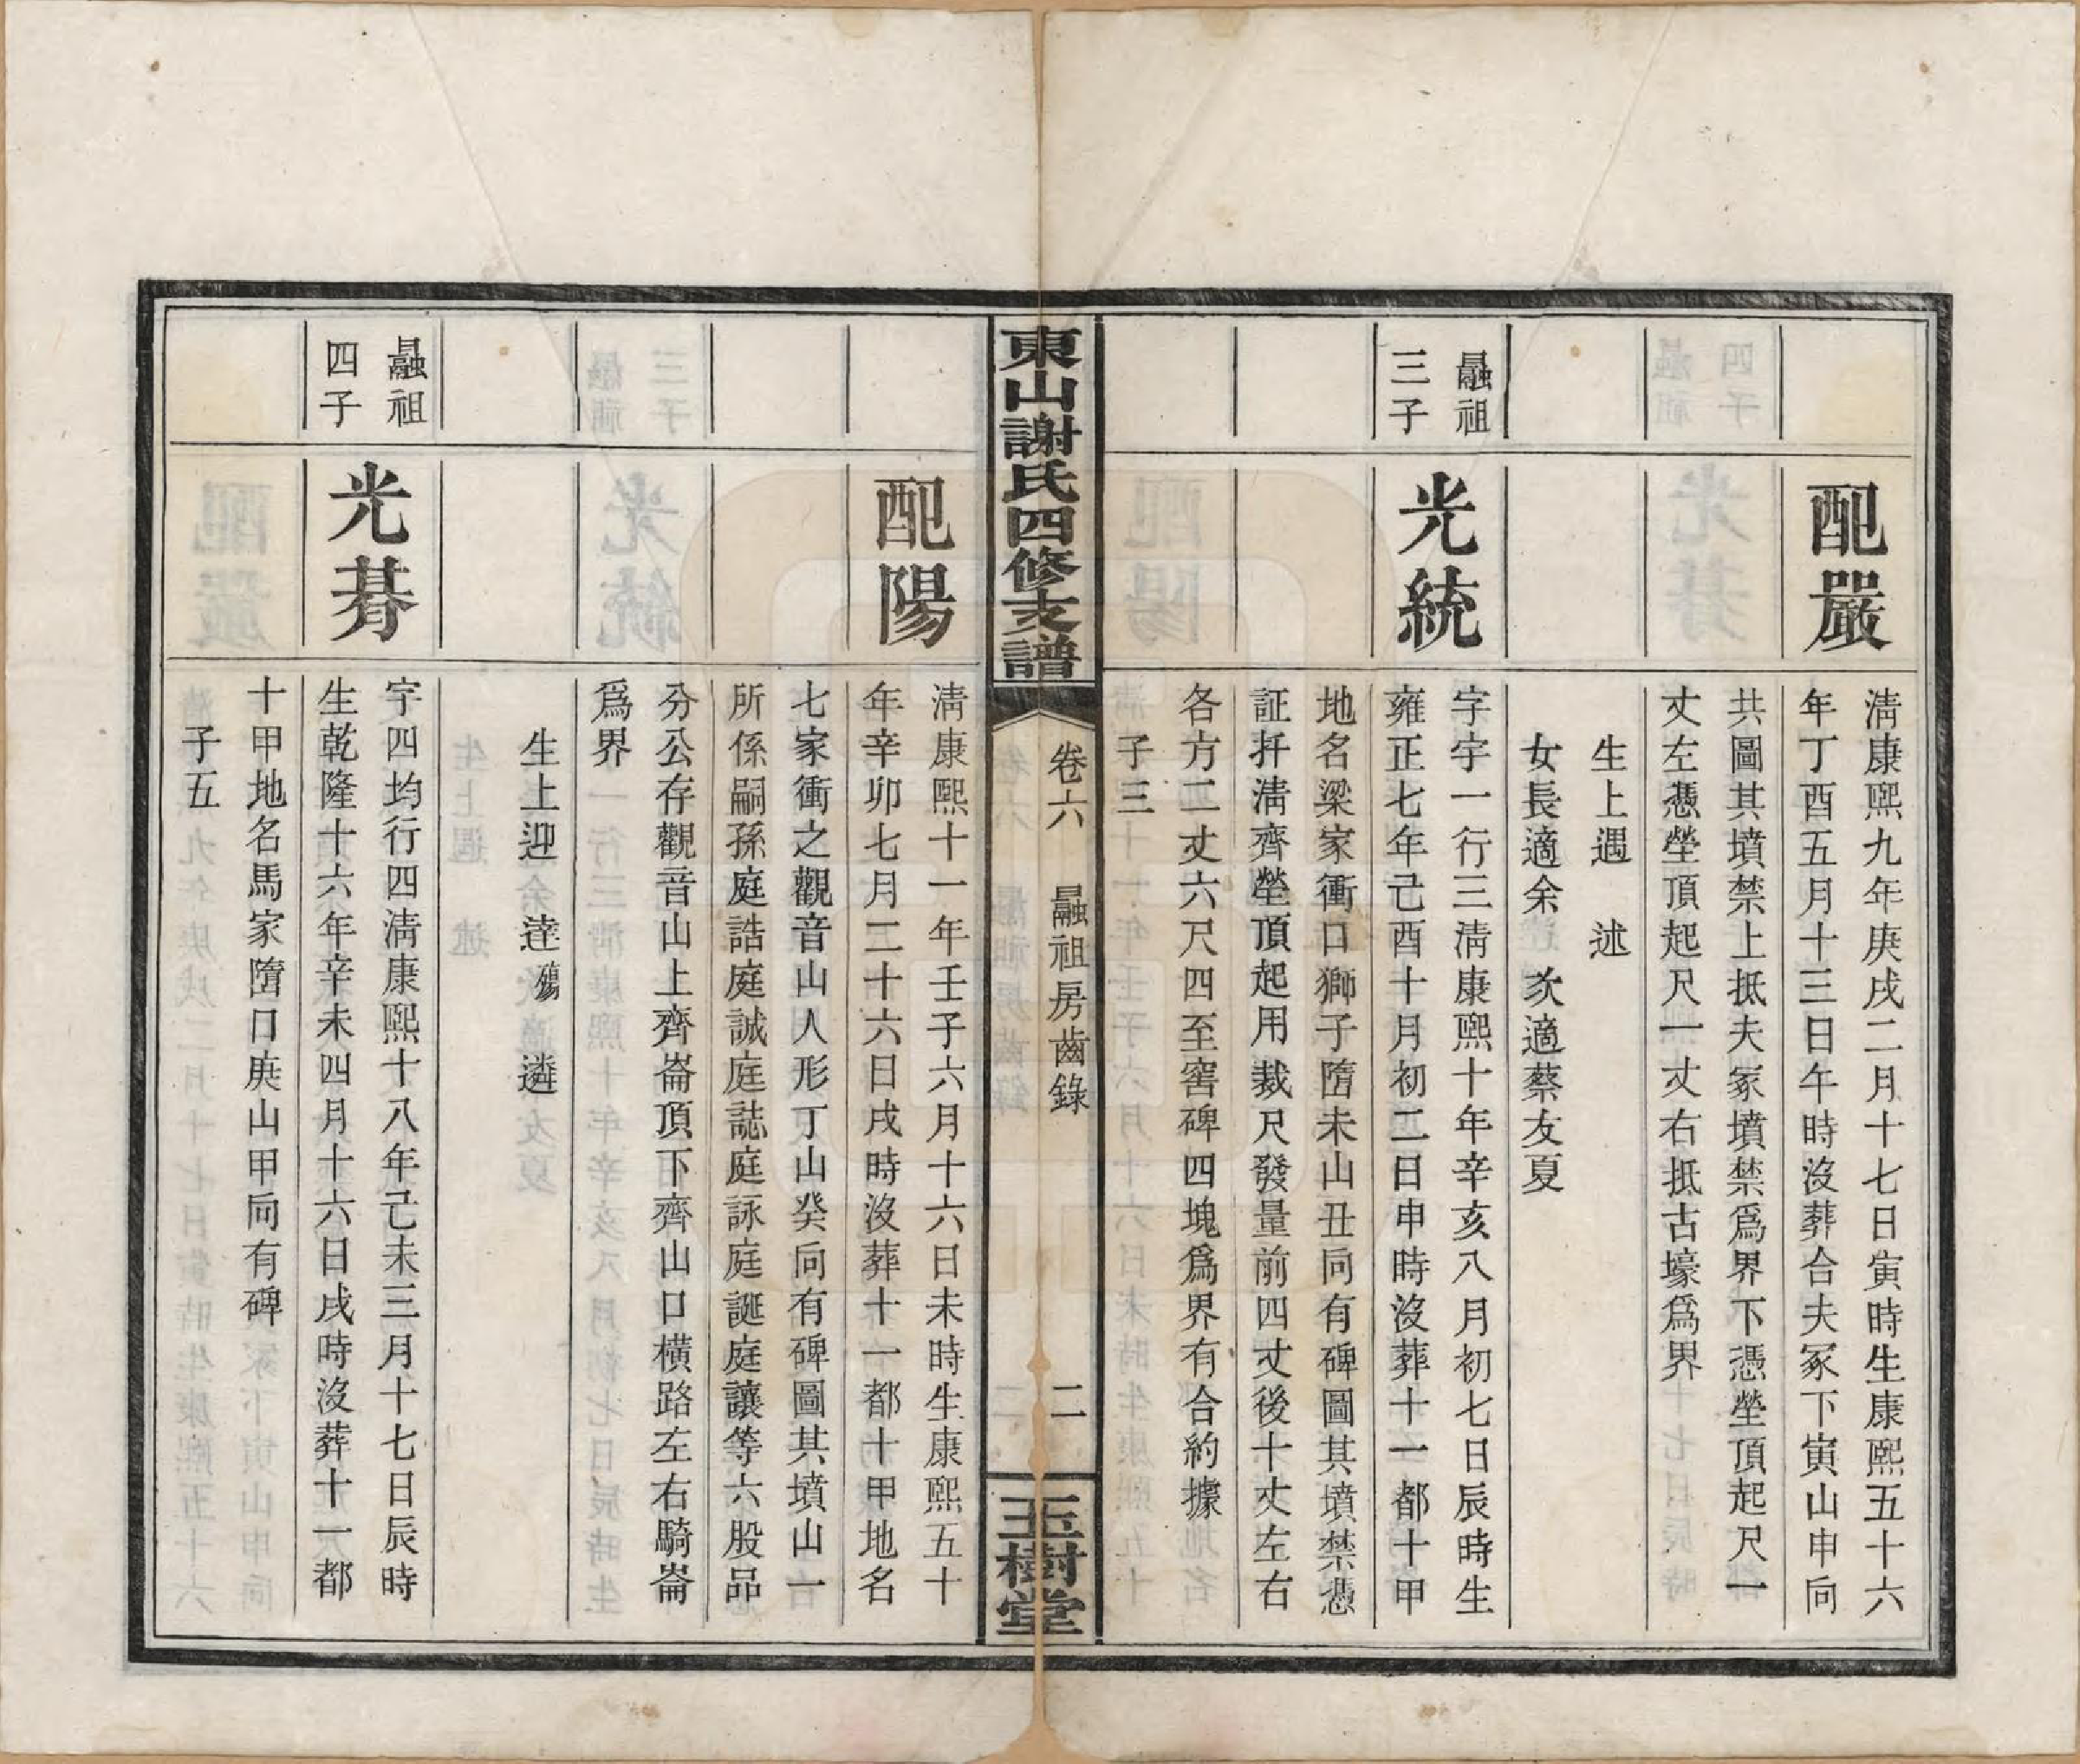 配嚴
清康熙九年庚戌二月十七日寅時生康熙五十六
年丁酉五月十三日午時沒葬合夫冢下寅山申向
共圖其墳禁上抵夫冢墳禁爲界下憑塋頂起尺一
丈左憑塋頂起尺一丈右抵古壕爲界
生上遇　述
女長適余　次適蔡友夏
晸祖
三子
光統
字宇一行三清康熙十年辛亥八月初七日辰時生
雍正七年己酉十月初二日申時沒葬十一都十甲
地名梁家衝口獅子墮未山丑向有碑圖其墳禁憑
証扦清齊塋頂起用裁尺發量前四丈後十丈左右
各方二丈六尺四至窖碑四塊爲界有合約據
子三
東山謝氏四修支譜
卷六　晸祖房齒錄　二
玉樹堂
配陽
清康熙十一年壬子六月十六日未時生康熙五十
年辛卯七月二十六日戌時沒葬十一都十甲地名
七家衝之觀音山人形丁山癸向有碑圖其墳山一
所係嗣孫庭誥庭誠庭誌庭詠庭誕庭讓等六股品
分公存觀音山上齊崙頂下齊山口橫路左右騎崙
爲界
生上迎　達殤　遴
四子
光朞
字四均行四清康熙十八年己未三月十七日辰時
生乾隆十六年辛未四月十六日戌時沒葬十一都
十甲地名馬家墮口庚山甲向有碑
子五